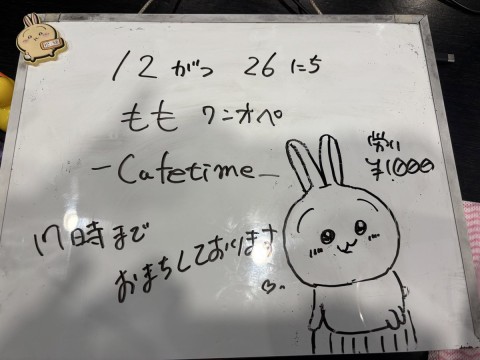 12がつ 26にち
もも ワンオペ
-Cafetime-
労い
¥1,000
17時まで
おまちしております